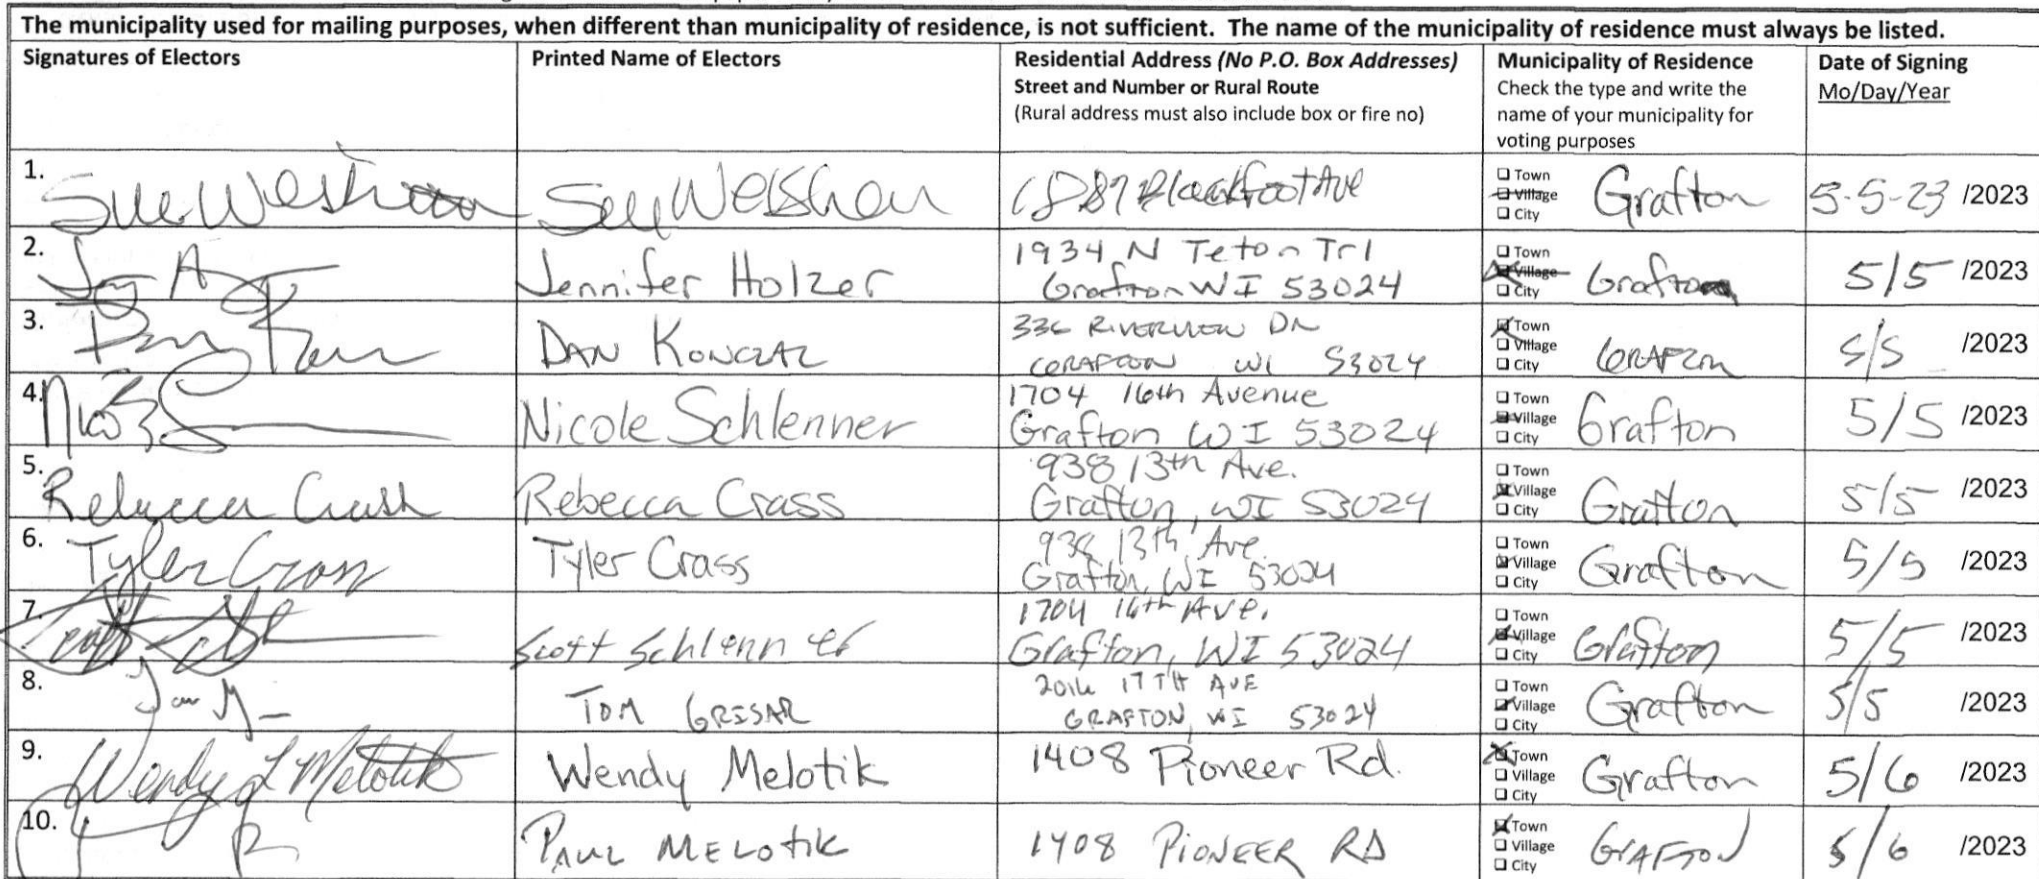 The municipality used for mailing purposes, when different than municipality of residence, is not sufficient. The name of the municipality of residence must always be listed.
Signatures of Electors
Printed Name of Electors
Residential Address (No P.O. Box Addresses)
Street and Number or Rural Route
(Rural address must also include box or fire no)
Municipality of Residence
Check the type and write the
name of your municipality for
voting purposes
Date of Signing
Mo/Day/Year
1.
Sue
Sue
Blackfoot Ave
Town
Village
City
Grafton
5-5-23 /2023
2.
Jennifer Holzer
1934 N Teton Trl
Grafton WI 53024
Town
Village
City
Grafton
5/5 /2023
3.
DAN
336 RIVERVIEW DR
GRAFTON WI 53024
Town
Village
City
GRAFTON
5/5 /2023
4.
Nicole Schlenner
1704 16th Avenue
Grafton WI 53024
Town
Village
City
Grafton
5/5 /2023
5.
Rebecca Crass
Rebecca Crass
938 13th Ave.
Grafton, WI 53024
Town
Village
City
Grafton
5/5 /2023
6.
Tyler Crass
Tyler Crass
938 13th Ave.
Grafton, WI 53024
Town
Village
City
Grafton
5/5 /2023
7.
Scott Schlenner
1704 16th Ave.
Grafton, WI 53024
Town
Village
City
Grafton
5/5 /2023
8.
TOM GRISAR
17TH AVE
GRAFTON, WI 53024
Town
Village
City
Grafton
5/5 /2023
9.
Wendy L Melotik
Wendy Melotik
1408 Pioneer Rd.
Town
Village
City
Grafton
5/6 /2023
10.
PAUL MELOTIK
1408 PIONEER RD
Town
Village
City
GRAFTON
5/6 /2023